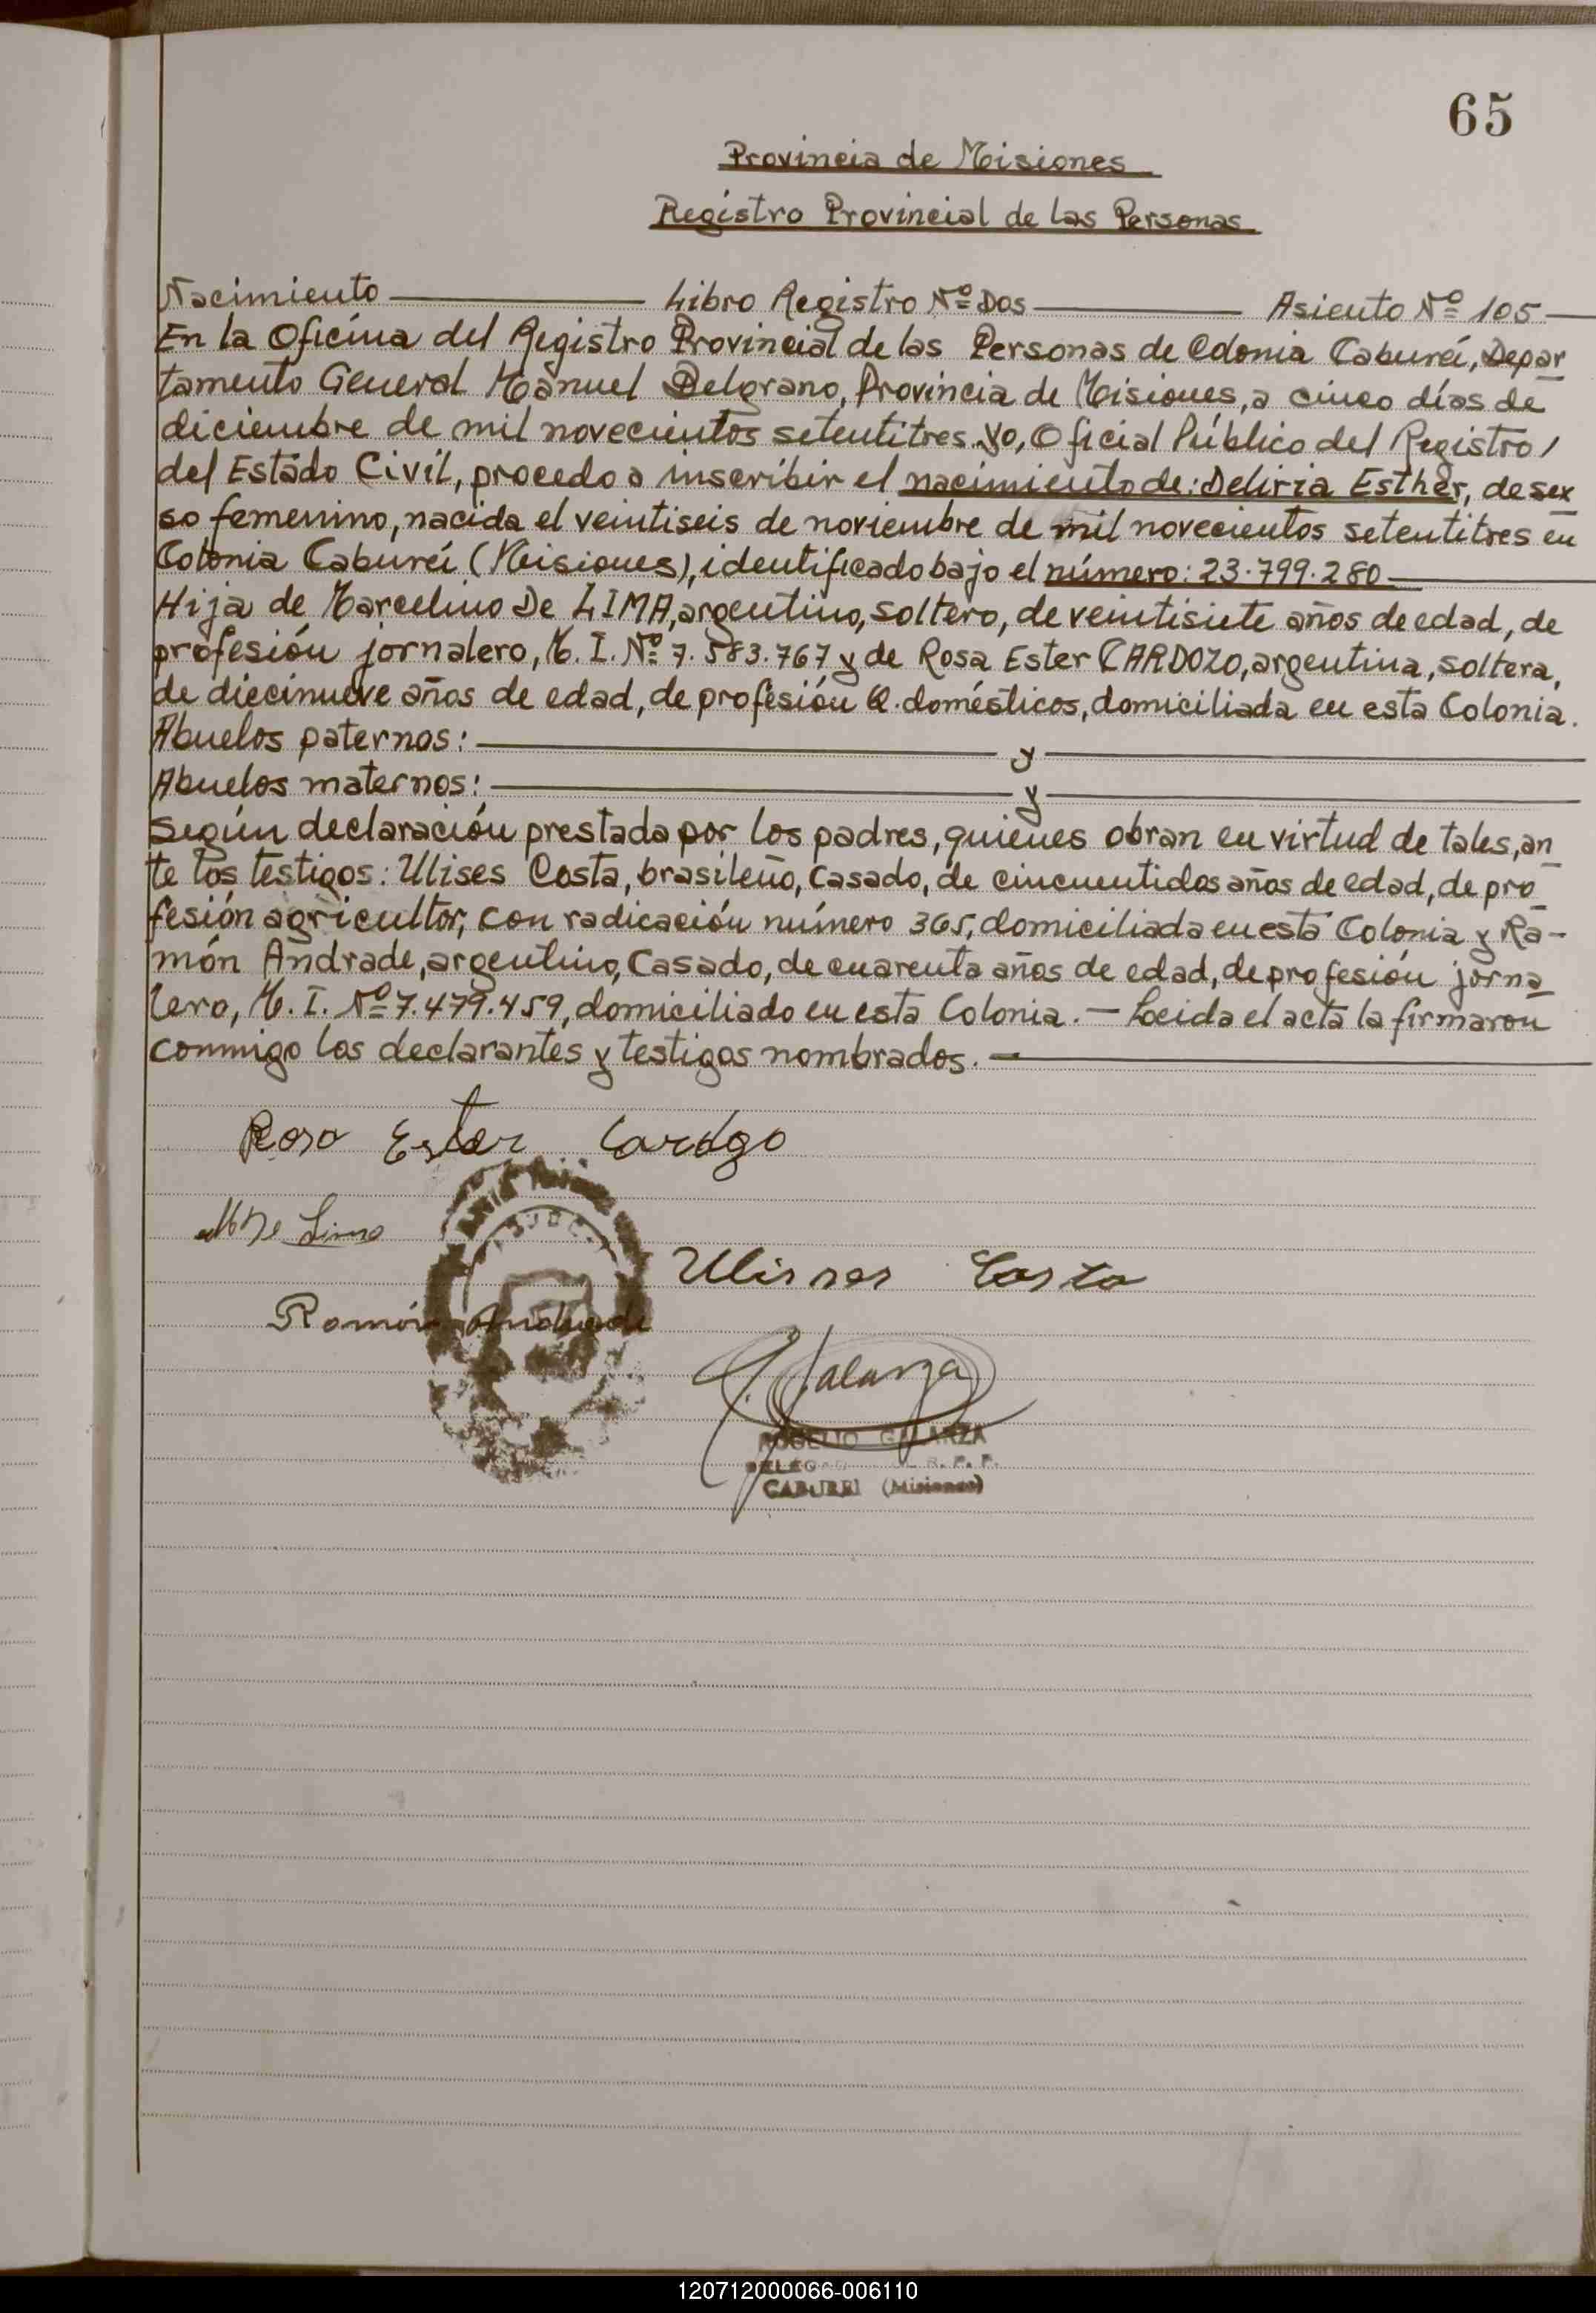 65
Provincia de Misiones
Registro Provincial de las Personas
Nacimiento Libro Registro Nº Dos Asiento Nº 105
En la Oficina del Registro Provincial de las Personas de Colonia Caburéi, Depar
tamento General Manuel Belgrano, Provincia de Misiones, a cinco días de
diciembre de mil novecientos setentitres. Yo, Oficial Público del Registro/
del Estado Civil, procedo a inscribir el nacimiento de: Deliria Esther, de sex
so femenino, nacida el veintiseis de noviembre de mil novecientos setentitres en
Colonia Caburéi (Misiones), identificado bajo el número: 23.799.280
Hija de Marcelino De LIMA, argentino, soltero, de veintisiete años de edad, de
profesión jornalero, M. I. Nº 7.583.767 y de Rosa Ester CARDOZO, argentina, soltera,
de diecinueve años de edad, de profesión Q. domésticos, domiciliada en esta Colonia.
Abuelos paternos: y
Abuelos maternos: y
Según declaración prestada por los padres, quienes obran en virtud de tales, an
te los testigos: Ulises Costa, brasileño, casado, de cincuentidos años de edad, de pro
fesión agricultor, con radicación número 365, domiciliada en esta Colonia y Ra-
món Andrade, argentino, casado, de cuarenta años de edad, de profesión jorna
lero, M. I. Nº 7.479.459, domiciliado en esta Colonia. — Leida el acta la firmaron
conmigo los declarantes y testigos nombrados. —
Rosa Ester Cardozo
M De Lima
Ulisses Costa
Ramón Andrade
Galarza
ROGELIO GALARZA
R. P. P.
CABUREI (Misiones)
120712000066-006110